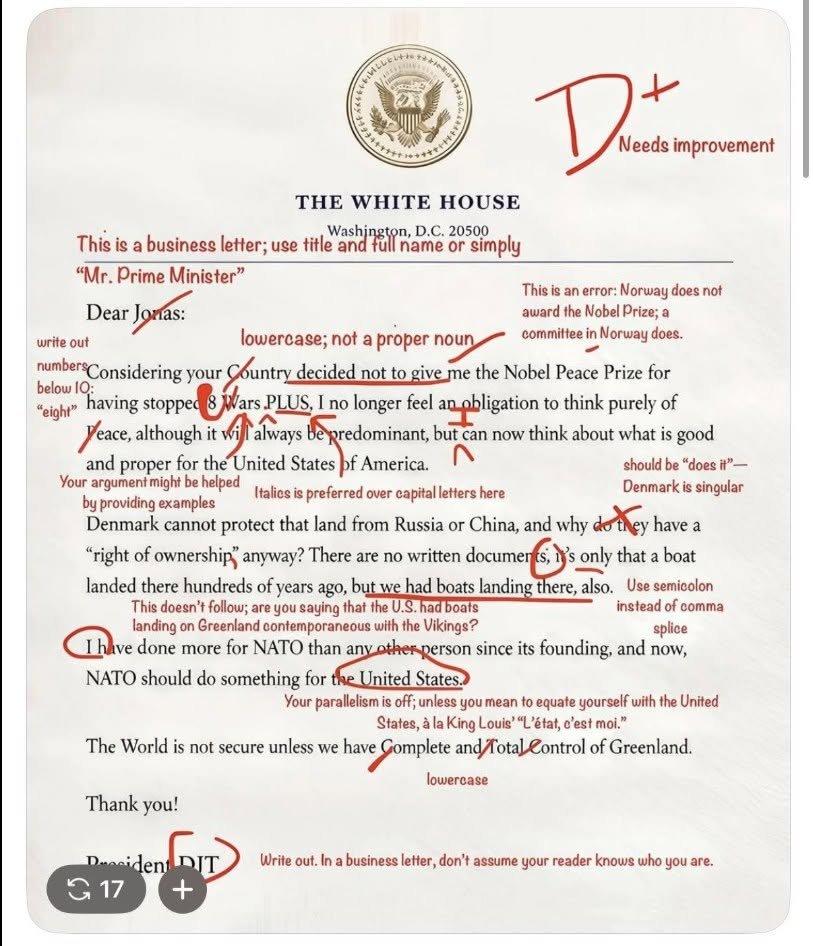 D+
Needs improvement
THE WHITE HOUSE
Washington, D.C. 20500
This is a business letter; use title and full name or simply
“Mr. Prime Minister”
Dear Jonas:
This is an error: Norway does not
award the Nobel Prize; a
committee in Norway does.
lowercase; not a proper noun
write out
numbers
below 10:
“eight”
Considering your Country decided not to give me the Nobel Peace Prize for
having stopped 8 Wars PLUS, I no longer feel an obligation to think purely of
Peace, although it will always be predominant, but can now think about what is good
I
and proper for the United States of America.
Your argument might be helped
by providing examples
Italics is preferred over capital letters here
should be “does it”—
Denmark is singular
Denmark cannot protect that land from Russia or China, and why do they have a
“right of ownership” anyway? There are no written documents, it’s only that a boat
landed there hundreds of years ago, but we had boats landing there, also.
Use semicolon
instead of comma
splice
This doesn’t follow; are you saying that the U.S. had boats
landing on Greenland contemporaneous with the Vikings?
I have done more for NATO than any other person since its founding, and now,
NATO should do something for the United States.
Your parallelism is off; unless you mean to equate yourself with the United
States, à la King Louis’ “L’état, c’est moi.”
The World is not secure unless we have Complete and Total Control of Greenland.
lowercase
Thank you!
President DJT
Write out. In a business letter, don’t assume your reader knows who you are.
17